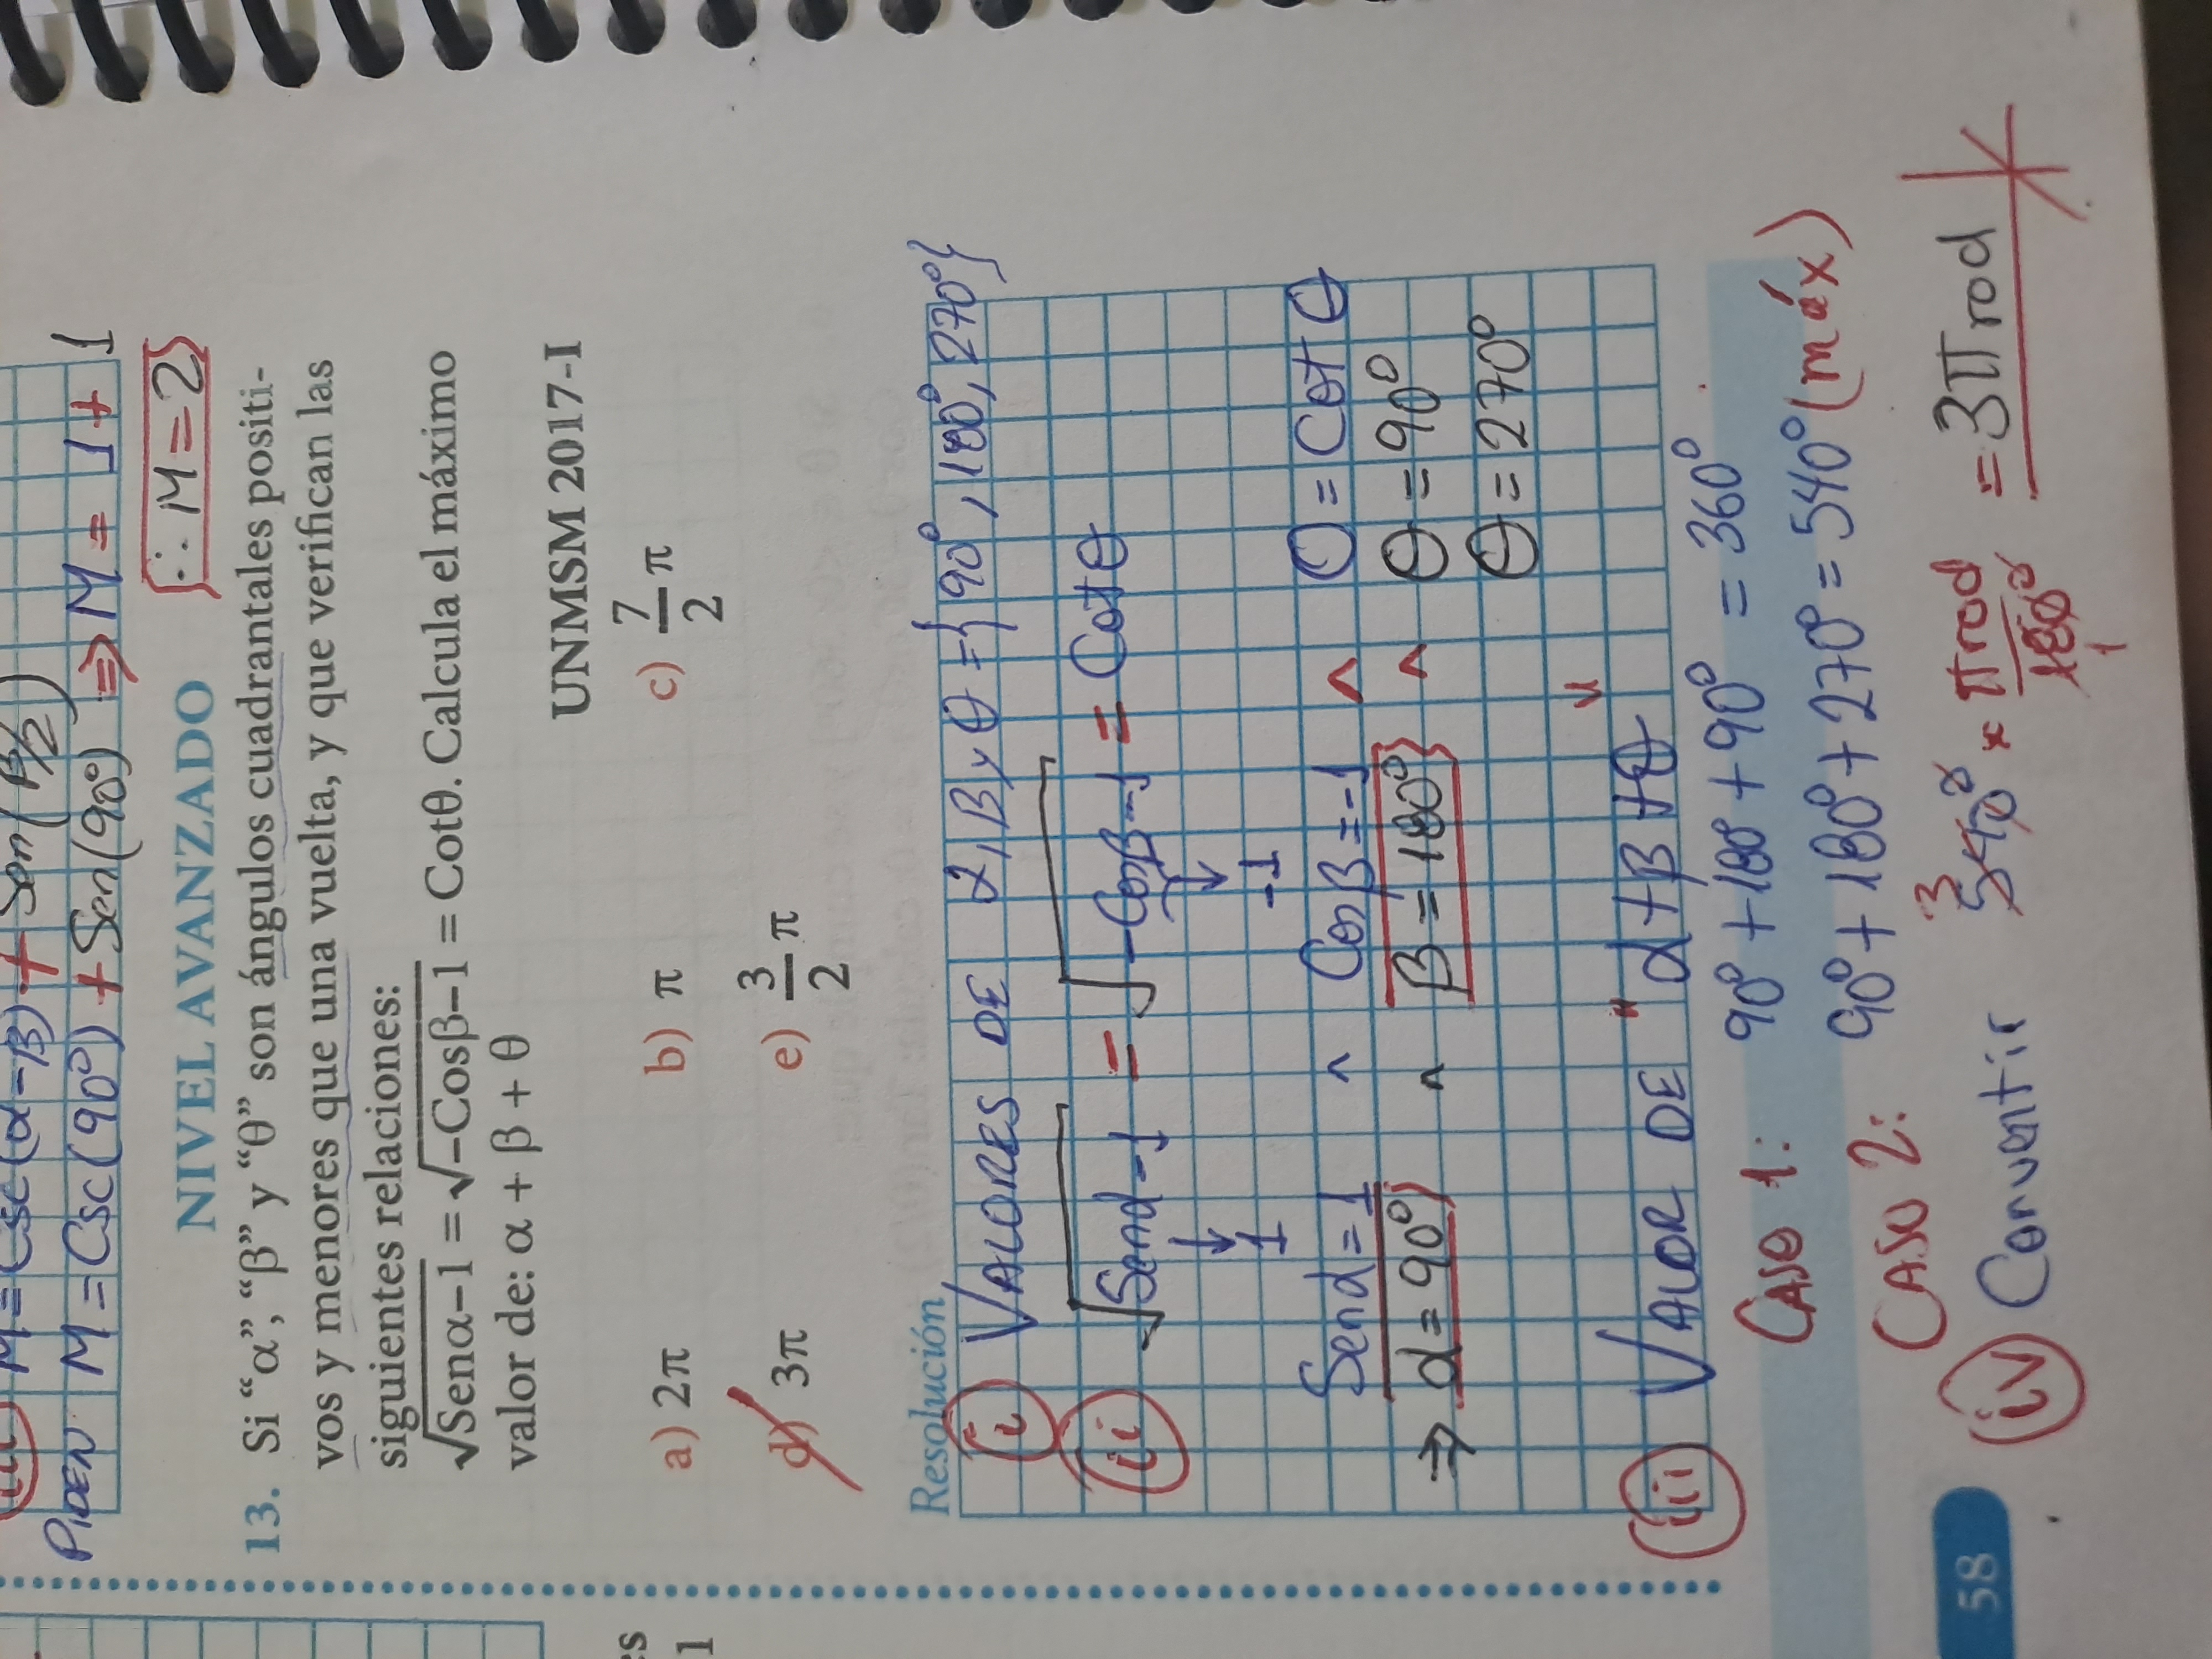 iii) M = Csc(α-β) + Sen(β/2)
PIDEN M = Csc(90°) + Sen(90°) ⇒ M = 1 + 1
∴ M = 2
NIVEL AVANZADO
13. Si “α”, “β” y “θ” son ángulos cuadrantales positi-
vos y menores que una vuelta, y que verifican las
siguientes relaciones:
√Senα−1 = √−Cosβ−1 = Cotθ. Calcula el máximo
valor de: α + β + θ
UNMSM 2017-I
es
1
a) 2π b) π c) 7/2 π
d) 3π e) 3/2 π
Resolución
i VALORES DE α, β y θ = {90°, 180°, 270°}
ii √Senα-1 = √-Cosβ-1 = Cotθ
↓ ↓
1 -1
Senα = 1 ^ Cosβ = -1 ^ 0 = Cot θ
⇒ α = 90° ^ β = 180° ^ θ = 90°
θ = 270°
iii VALOR DE "α+β+θ"
CASO 1: 90° + 180° + 90° = 360°
CASO 2: 90° + 180° + 270° = 540° (máx)
58
iv Convertir 540° × πrad/180° = 3πrad
3
1